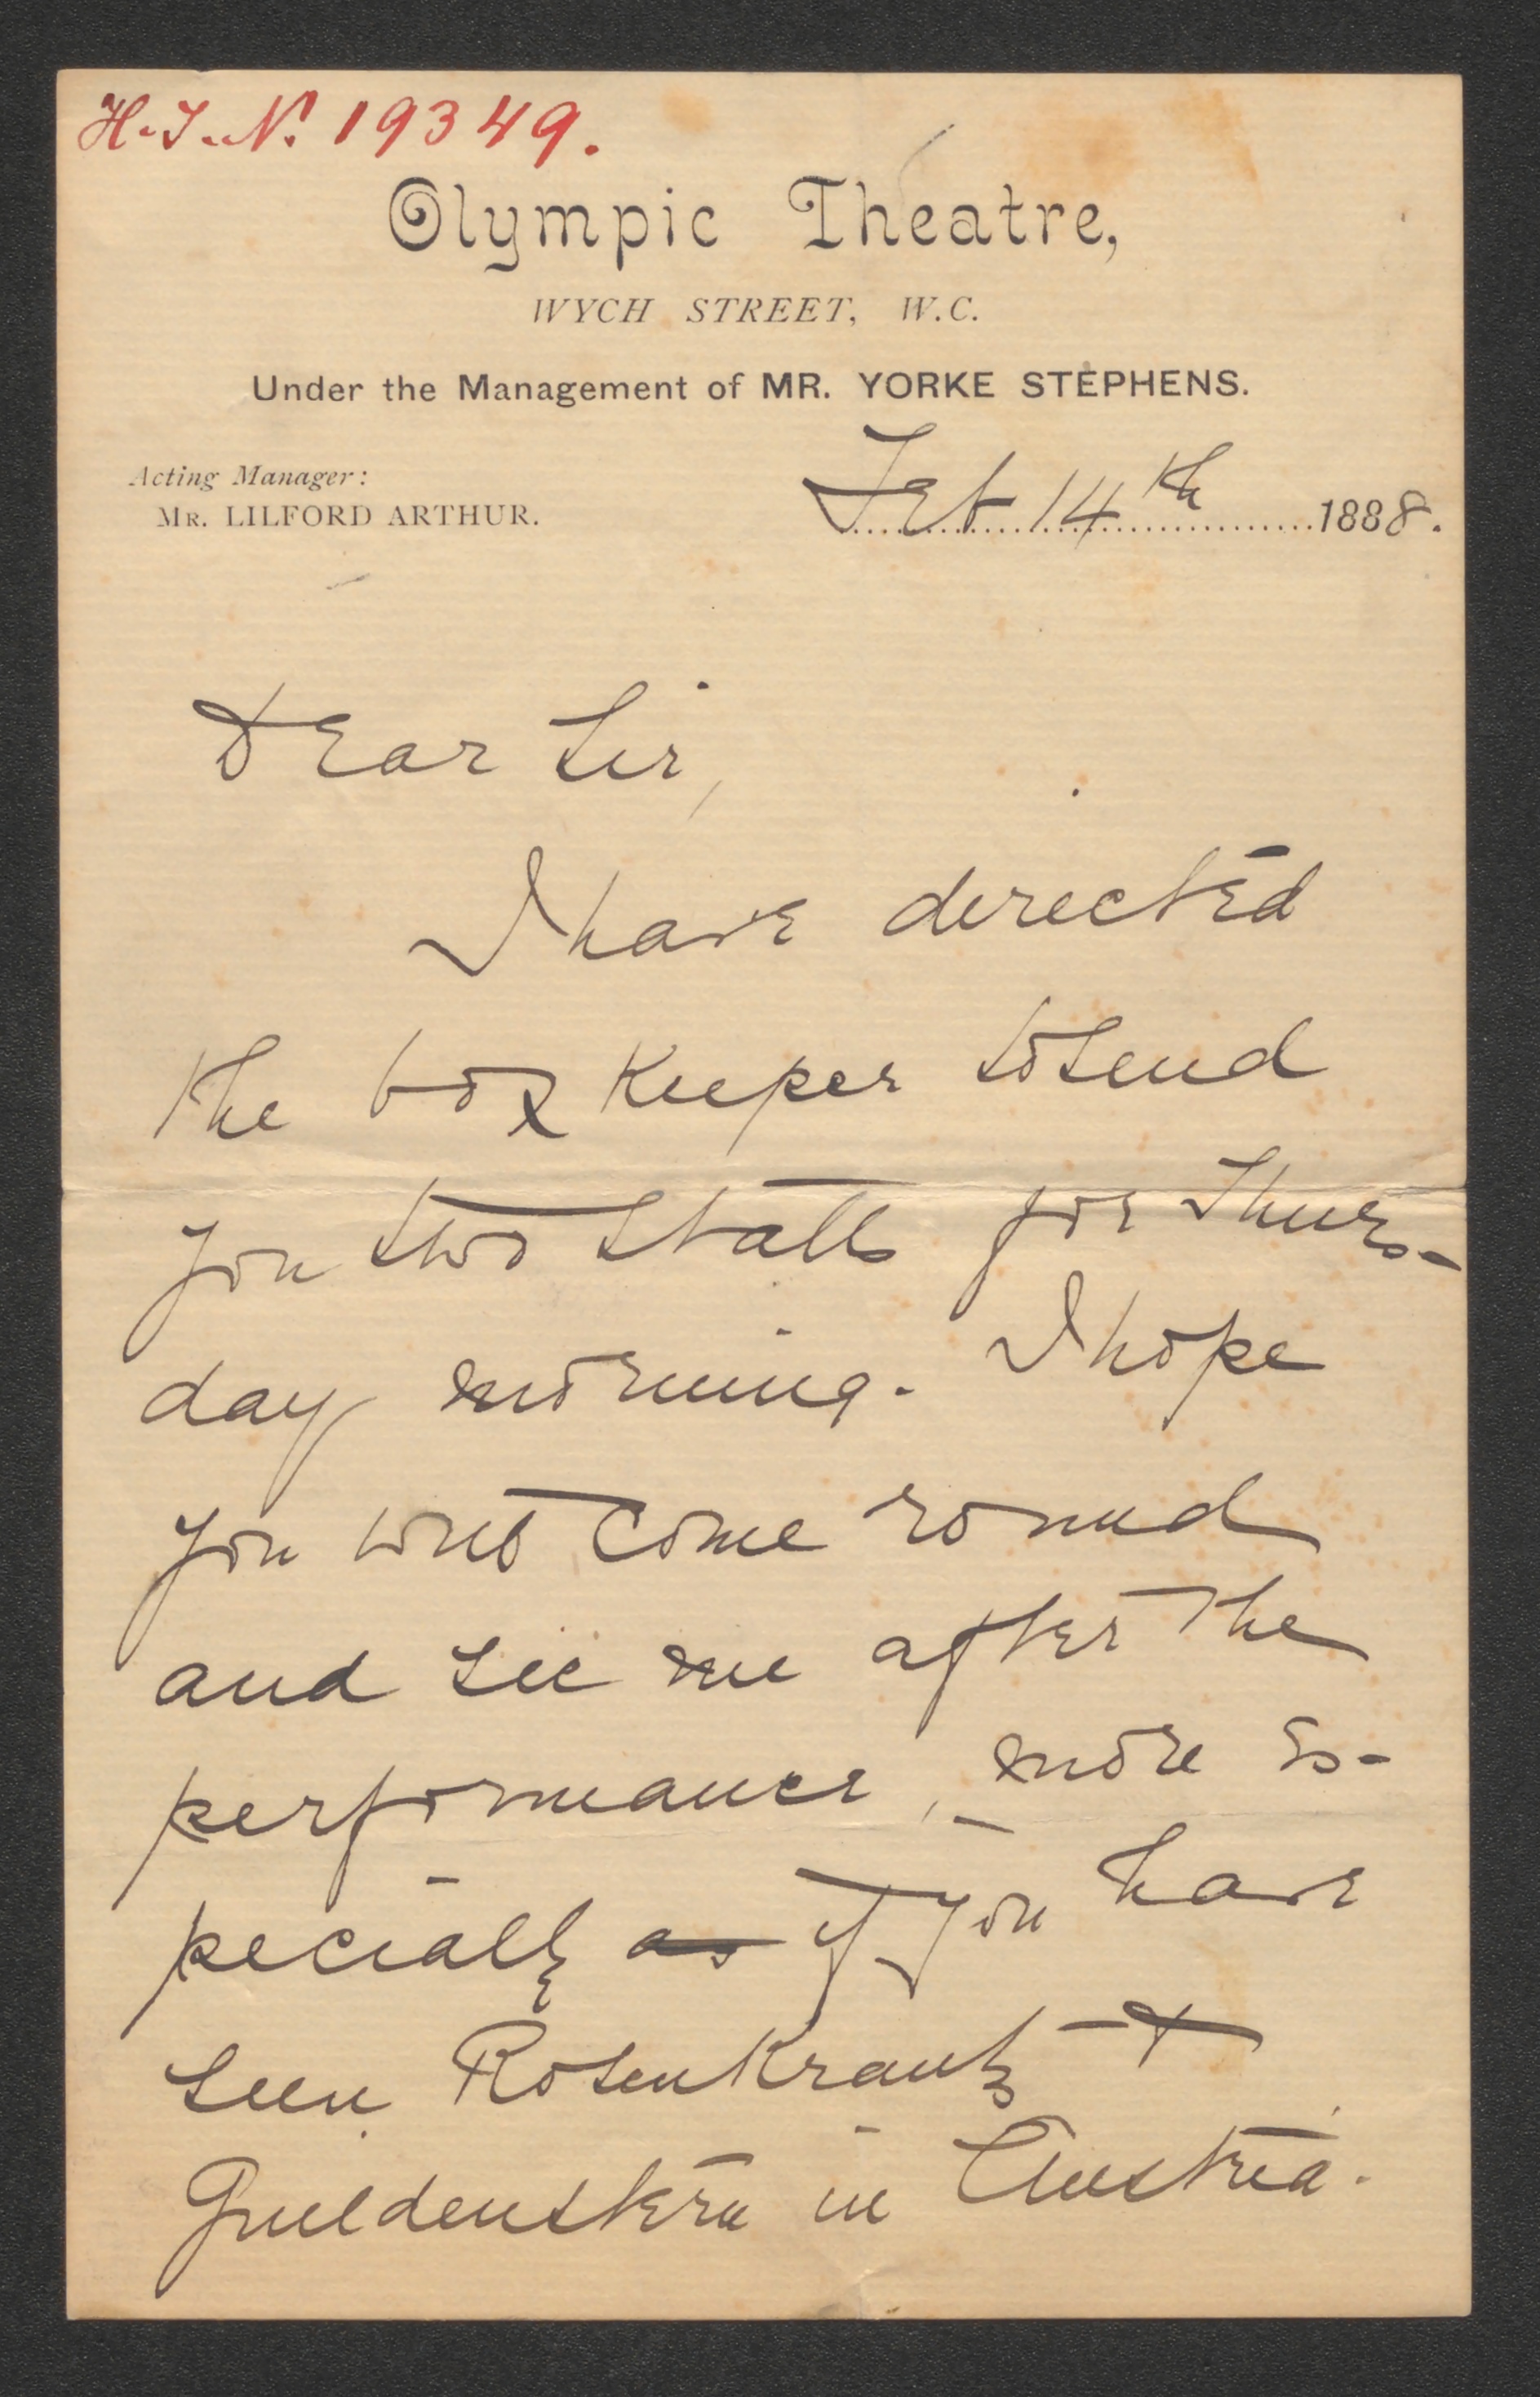 H.I.N. 19349.
Olympic Theatre,
WYCH STREET, W.C.
Under the Management of MR. YORKE STEPHENS.
Acting Manager:
MR. LILFORD ARTHUR.
Feb 14th 1888.
Dear Sir,
I have directed
the box keeper to send
you two Stalls for Thurs-
day morning. I hope
you will come round
and see me after the
performance, - more es-
pecially as if you have
seen Rosenkrantz &
Guildenstern in Austria.